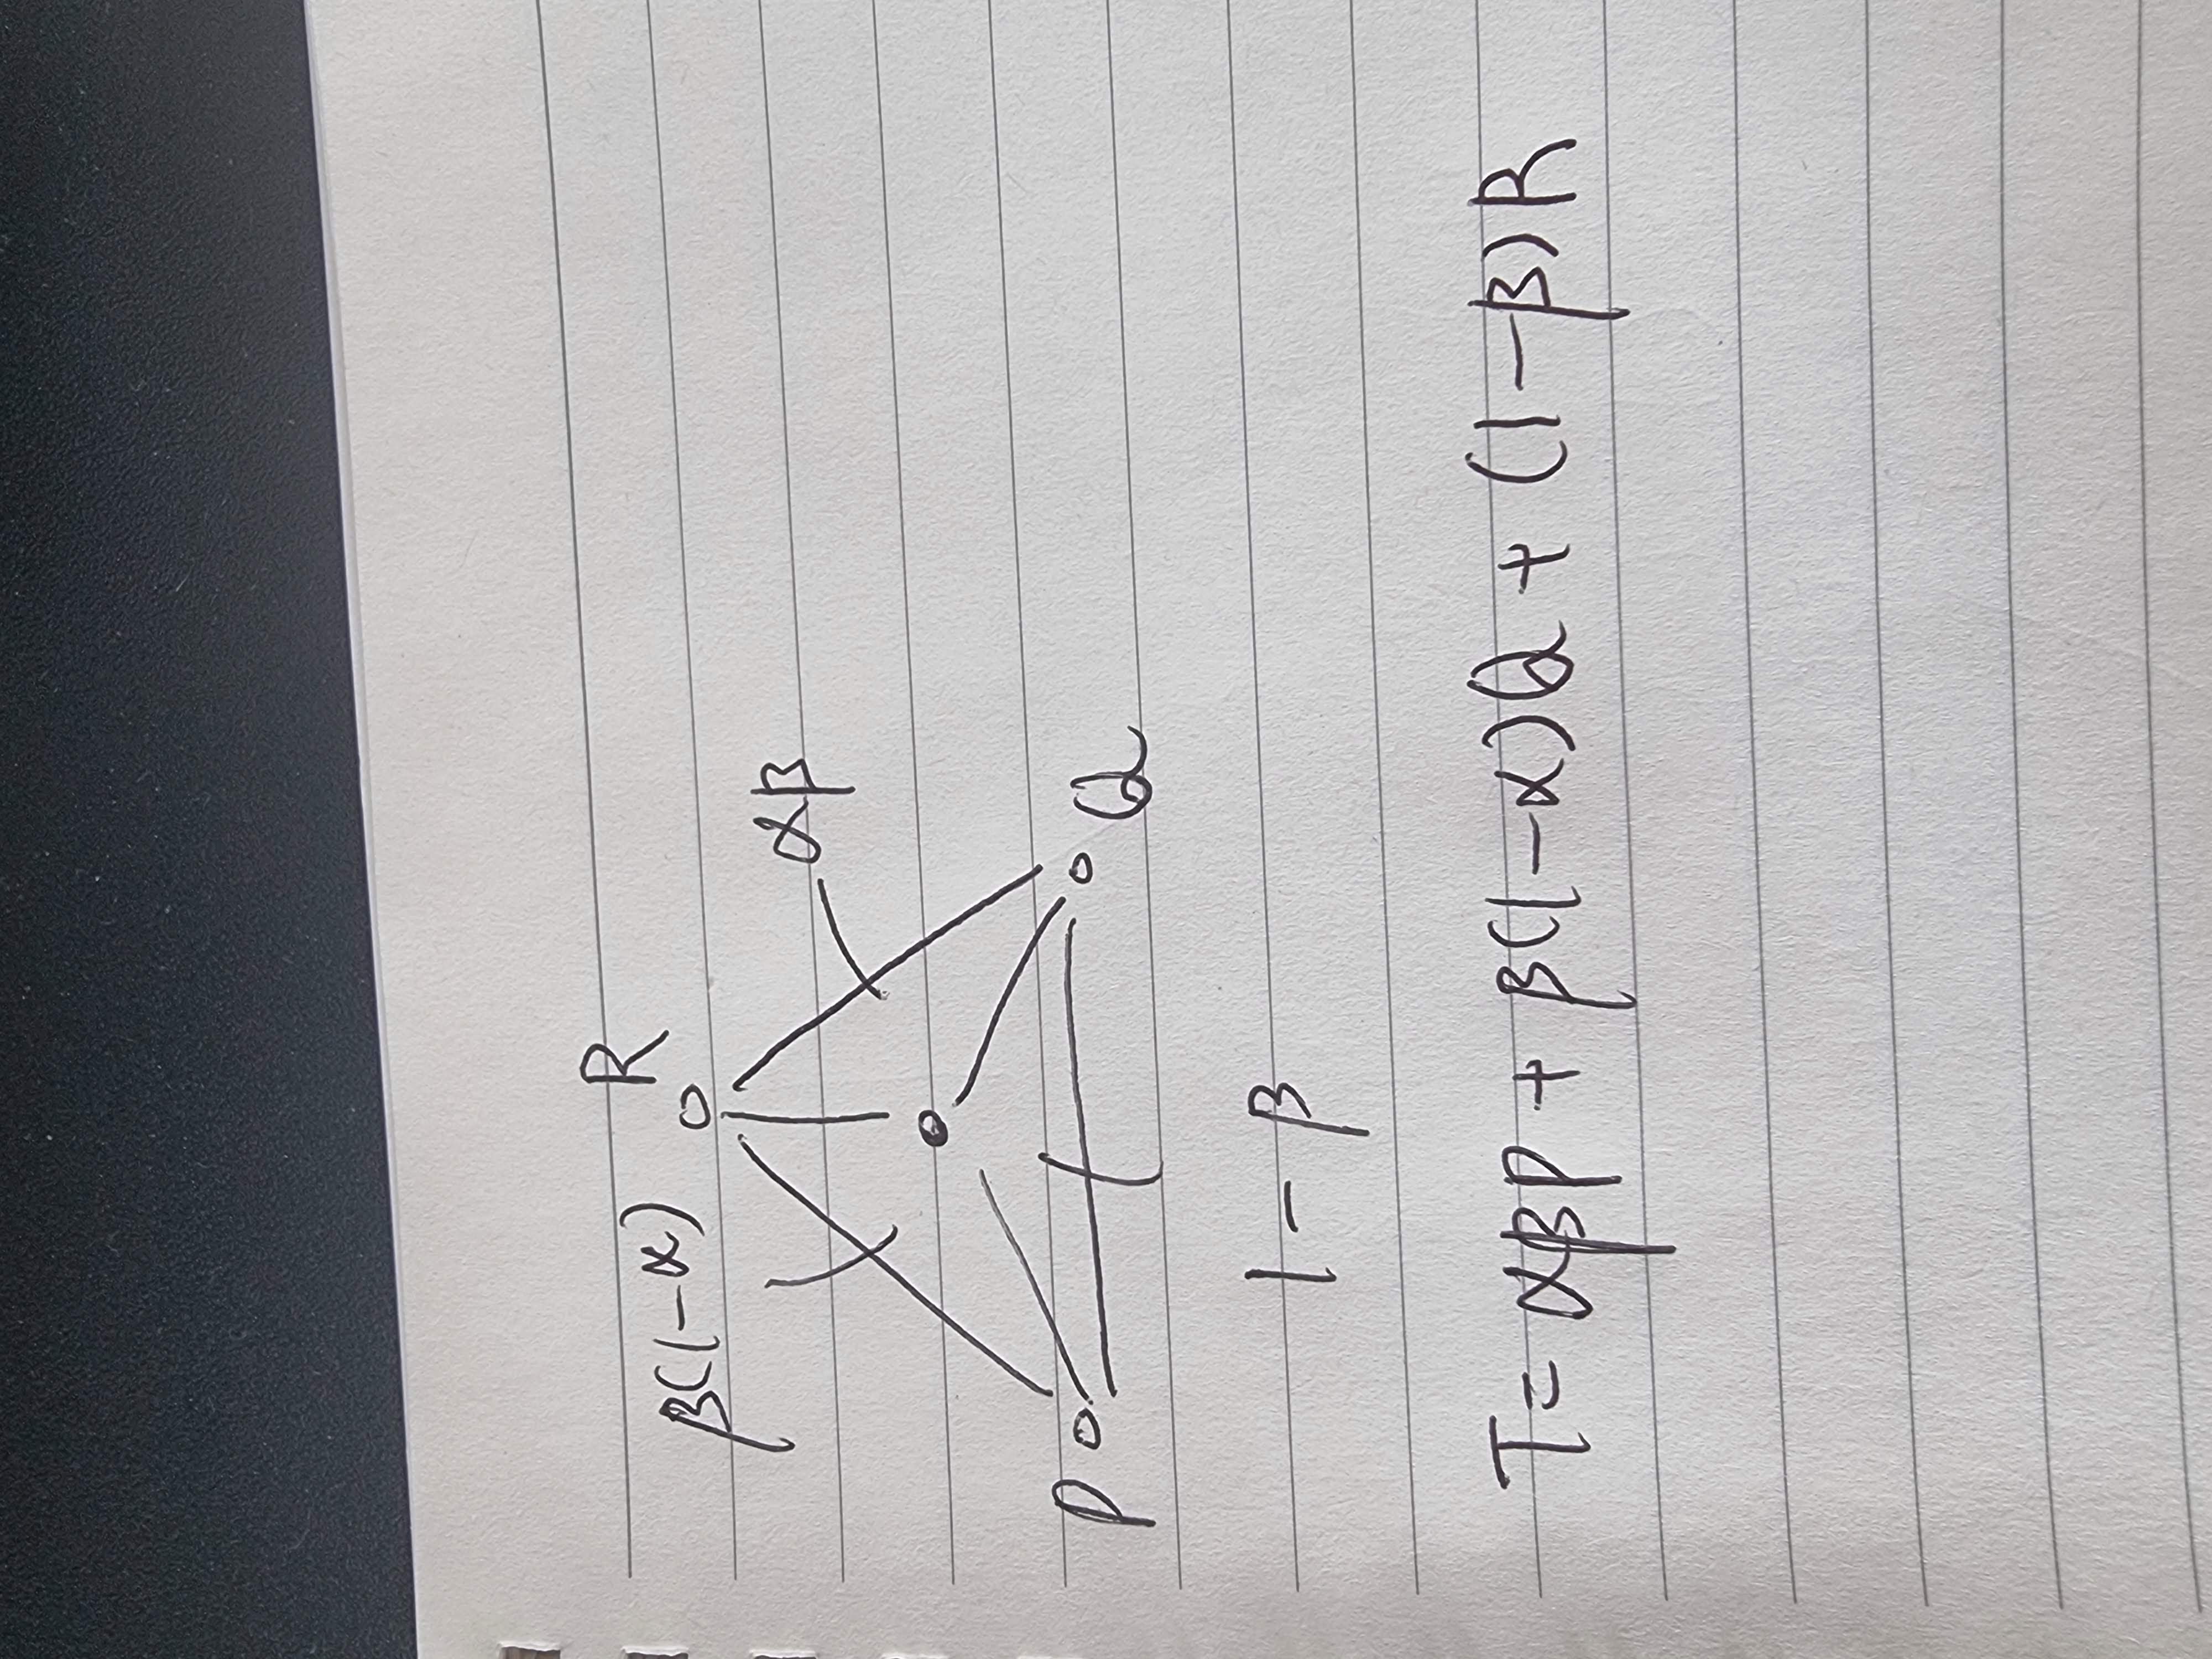 R
β(1-α)
αβ
P
Q
1-β
T= αβP + β(1-α)Q + (1-β)R